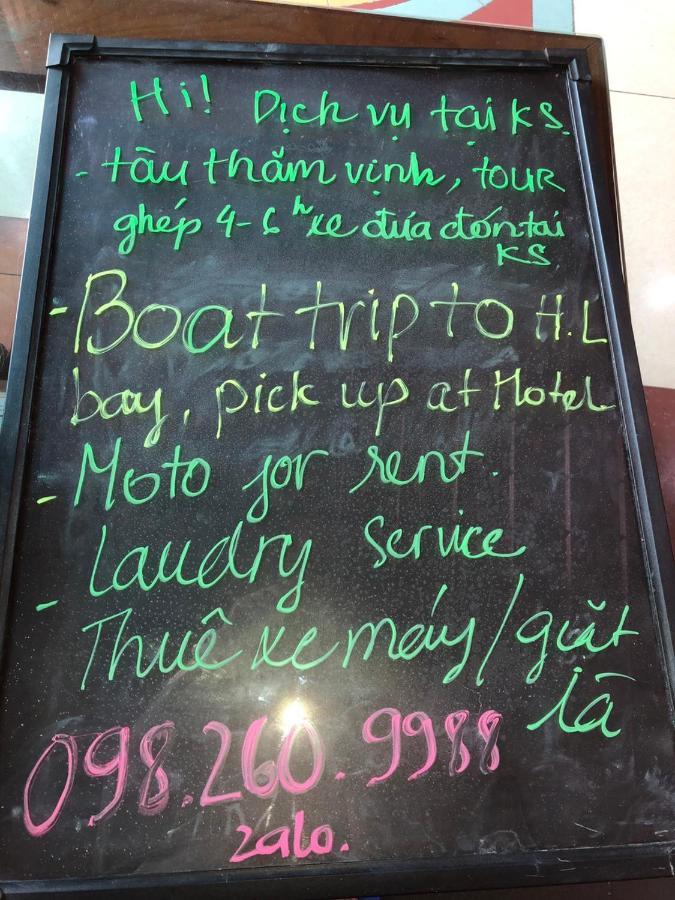 Hi! Dịch vụ tại KS.
- tàu thăm vịnh, TOUR
ghép 4-6h xe đưa đón tại
KS
- Boat trip to H.L
bay, pick up at Hotel
- Moto for rent.
- Laudry Service
Thuê xe máy/giặt
là
098.260.9988
zalo.